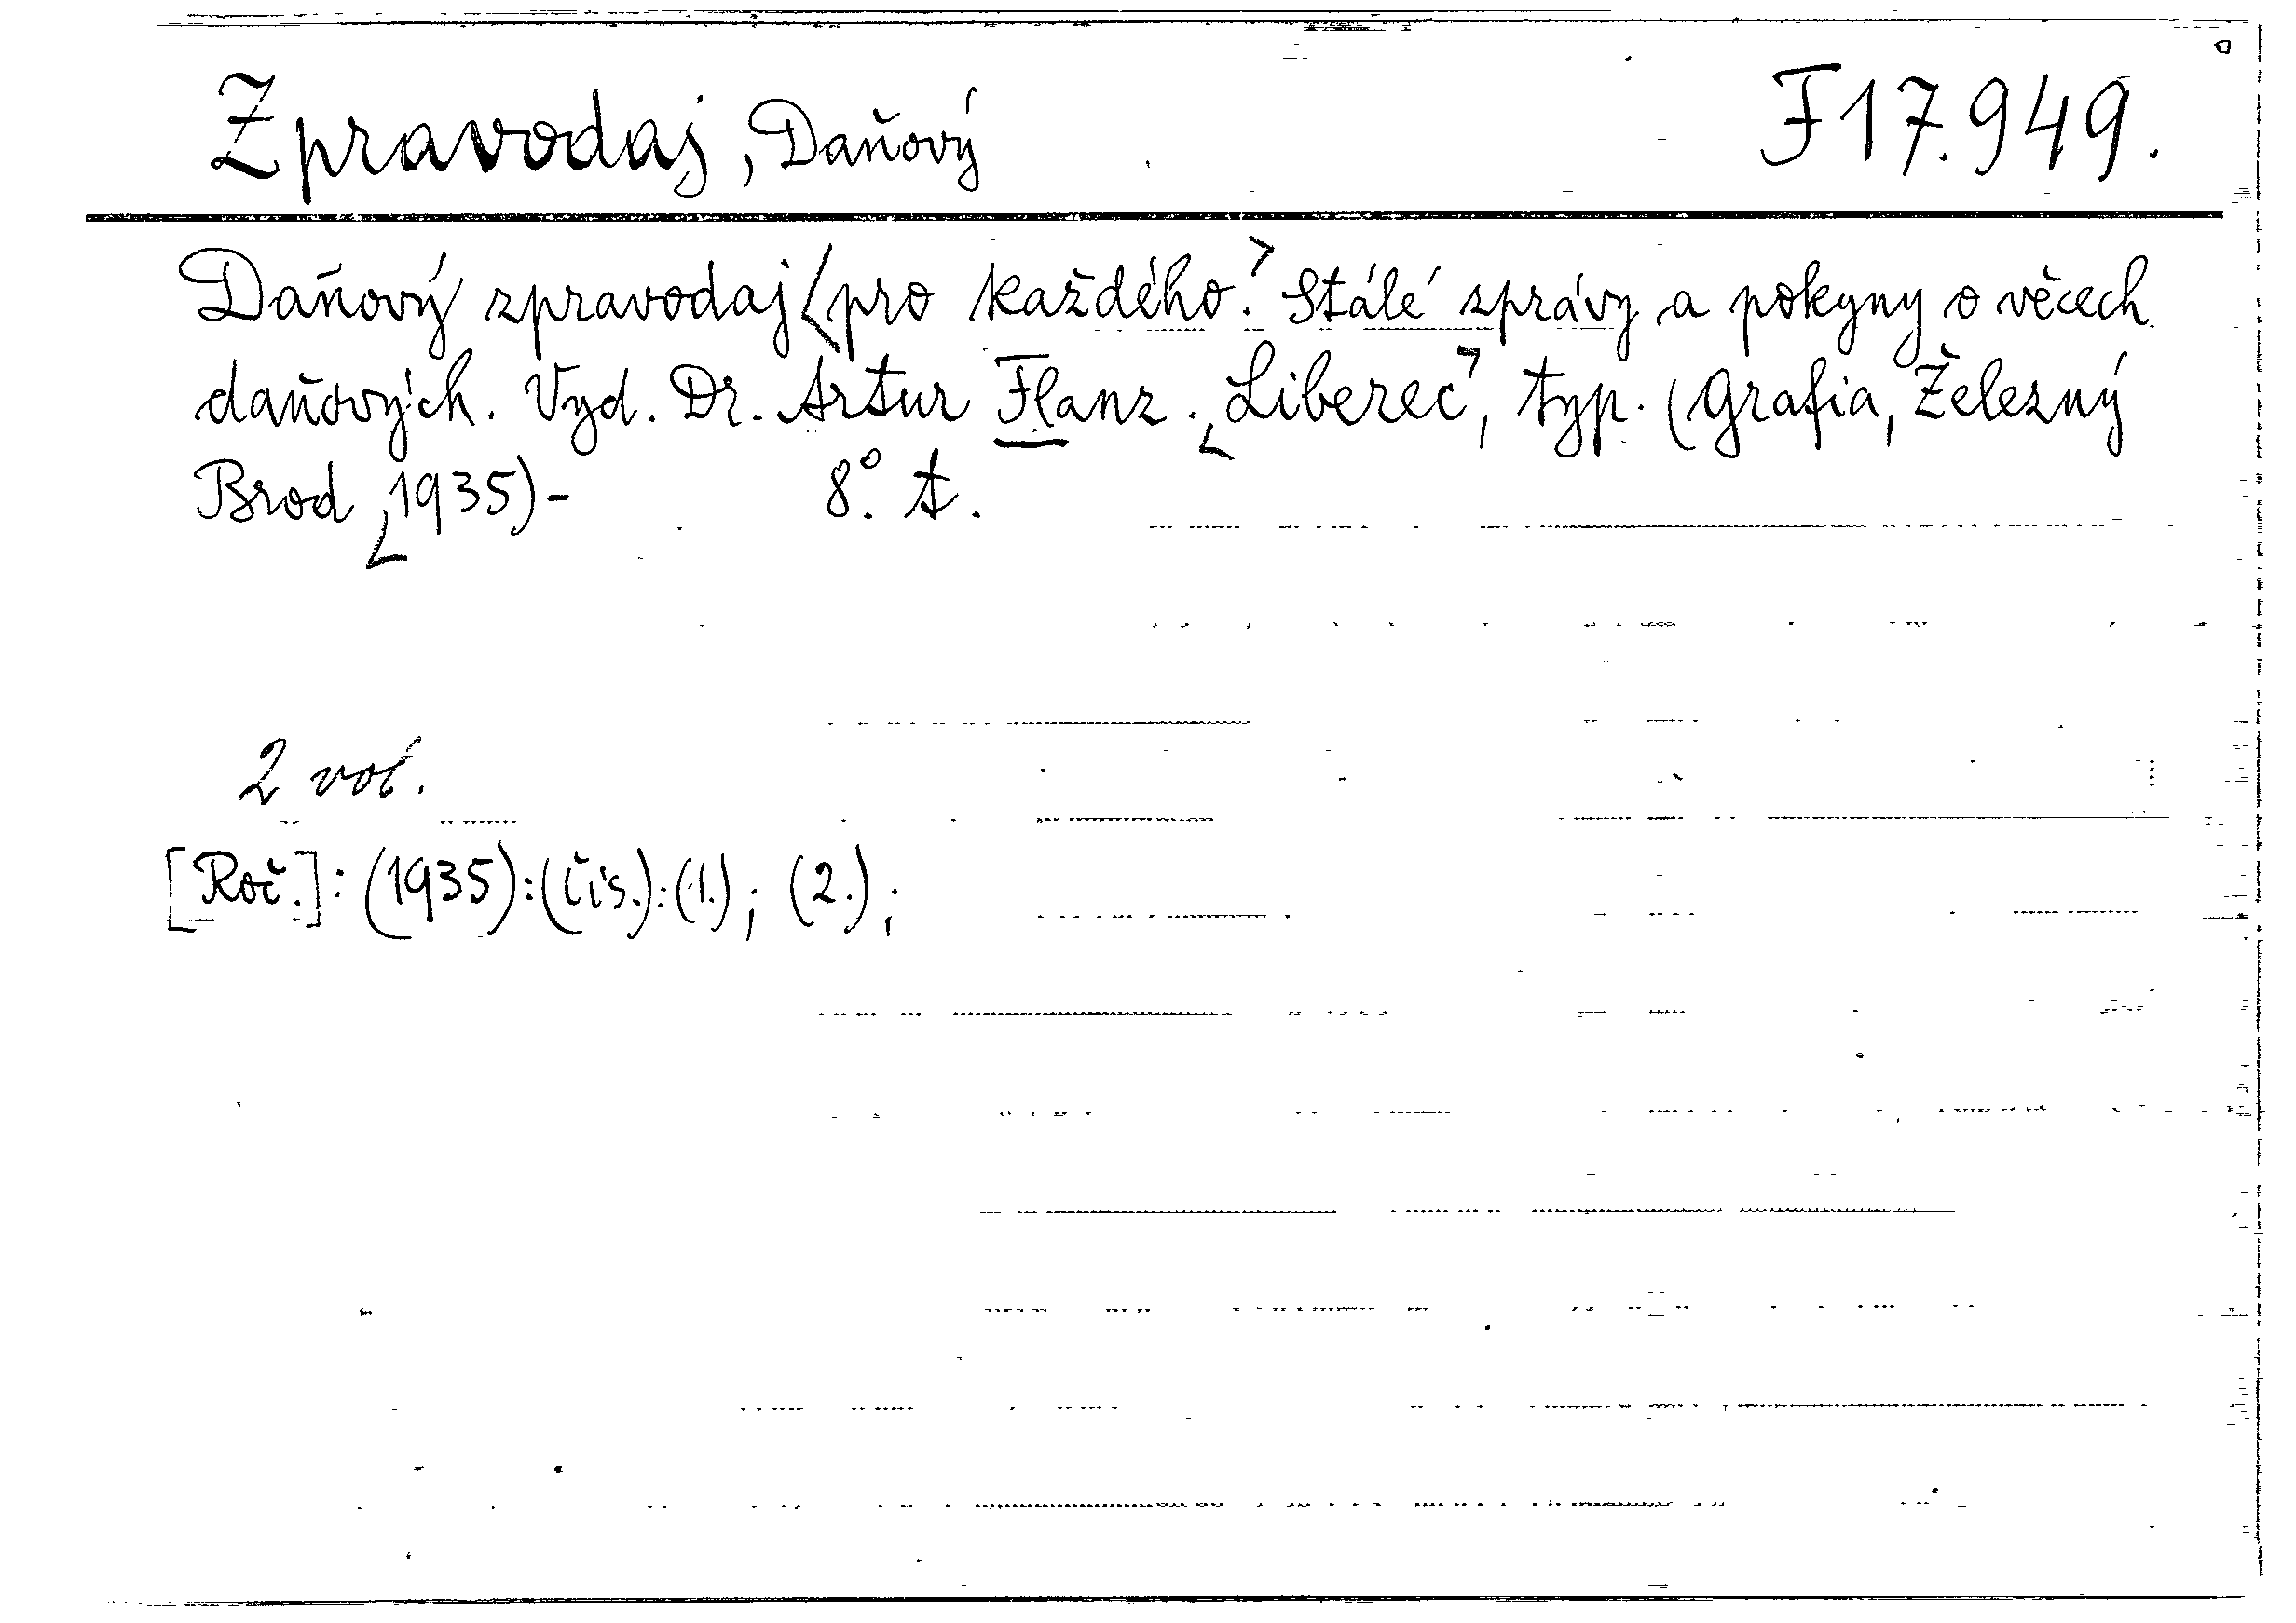 Zpravodaj, Daňový F 17.949.
Daňový zpravodaj <pro každého.> Stálé zprávy a pokyny o věcech
daňových. Vyd. Dr. Artur Flanz. <Liberec>, typ. (Grafia, Železný
Brod, <1935)- 8°. t.
2 vol.
[Roč.]: (1935): (čís.): (1.); (2.);